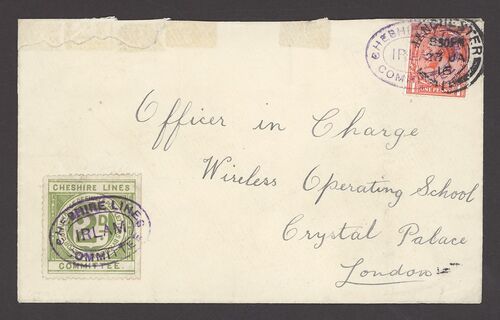 CHESHIRE LINES
IRLAM
COMMITTEE
MANCHESTER
830PM
ONE PENNY
Officer in Charge
Wireless Operating School
Crystal Palace
London
CHESHIRE LINES
2D
COMMITTEE.
CHESHIRE LINES
IRLAM
COMMITTEE